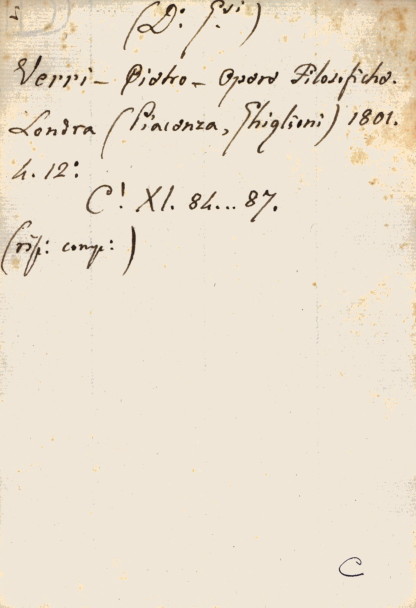 (D: Gsi)
Verri - Pietro - Opere Filosofiche.
Londra (Piacenza, Ghiglioni) 1801.
4. 12:
C! XI. 84... 87.
(risp: comp: )
C